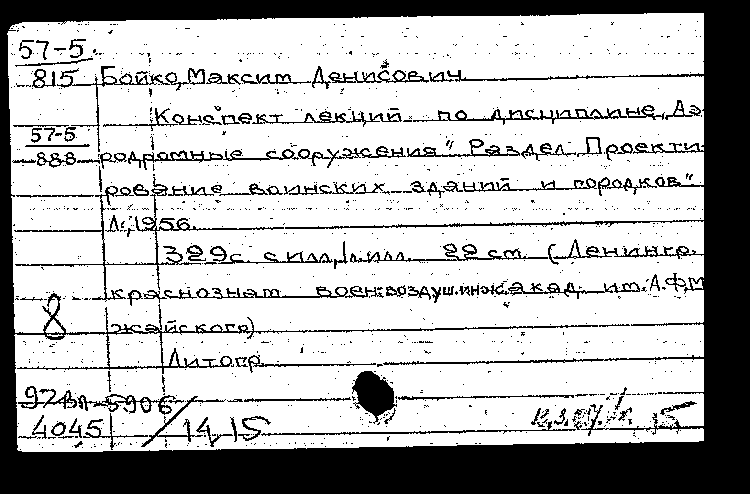 57-5
815 Бойко, Максим Денисович
Конспект лекций по дисциплине „Аэ-
57-5
888 родромные сооружения" Раздел „Проекти-
рование воинских зданий и городков"
Л., 1956.
329с. с илл., 1 л. илл. 29 см. (Ленингр.
краснознам. воен. воздуш. инж. акад. им. А.Ф.М
8 жайского)
Литогр.
92 вл-5906
4045 / 14, 15
15